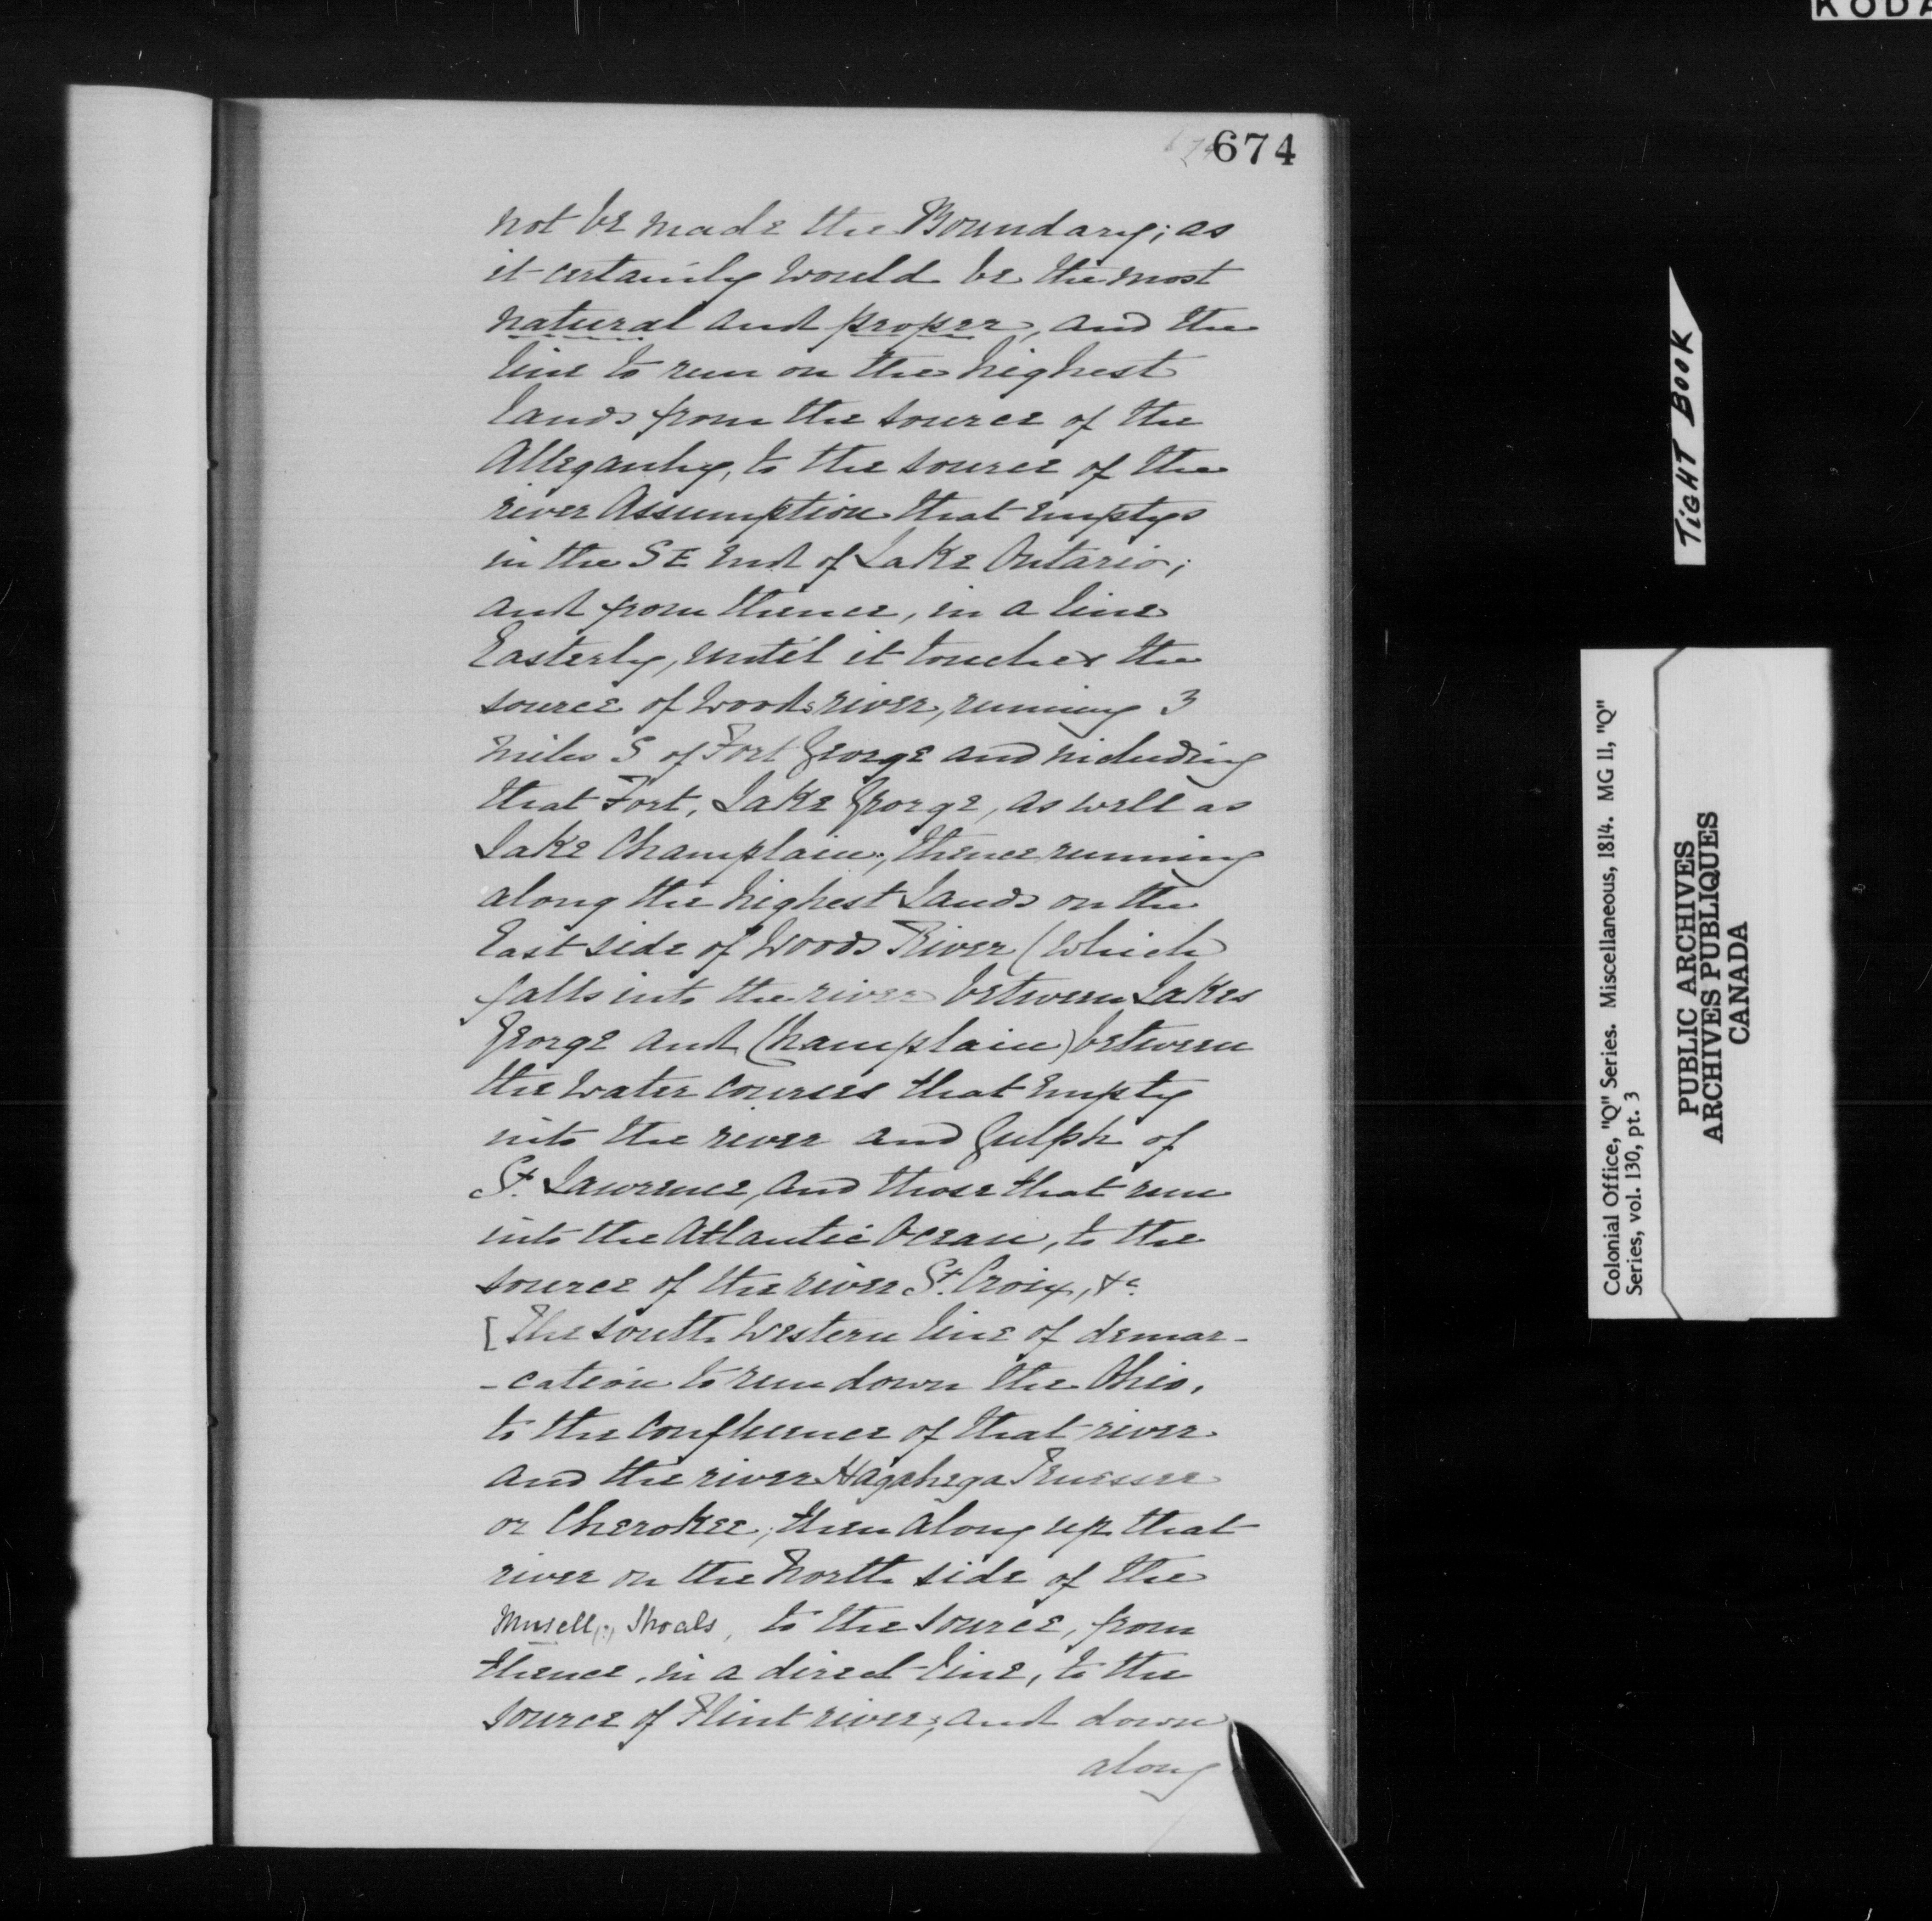 KODA
674
not be made the Boundary; as
it certainly would be the most
natural and proper, and the
line to run on the highest
lands from the source of the
Alleganhy, to the source of the
river Assumption that emptys
in the SE end of Lake Ontario;
and from thence, in a line
Easterly, until it touches the
source of woods river, running 3
miles S of Fort George and including
that Fort, Lake George, as well as
Lake Champlain; thence running
along the highest Lands on the
East side of Woods River (which
falls into the river between Lakes
George and Champlain) between
the water courses that empty
into the river and Gulph of
St. Lawrence, and those that run
into the Atlantic Ocean, to the
source of the river St. Croix, &c.
[The south Western line of demar-
-cation to run down the Ohio,
to the confluence of that river
and the river Hagahega Tenessee
or Cherokee; then along up that
river on the North side of the
Musell Shoals, to the source, from
thence, in a direct line, to the
source of Flint river; and down
along
TIGHT BOOK
Colonial Office, "Q" Series. Miscellaneous, 1814. MG 11, "Q"
Series, vol. 130, pt. 3
PUBLIC ARCHIVES
ARCHIVES PUBLIQUES
CANADA